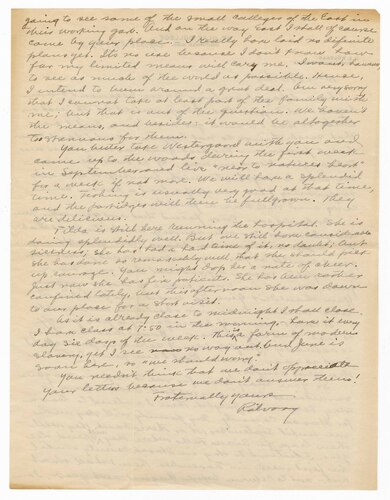 going to see some of the small colleges of the East in
their working garb. And on the way East I shall of course
come by your place. I really have laid no definite
plans yet. It's no use because I don't know how
far my limited means will carry me. I want, however,
to see as much of the world as possible. Hence,
I intend to bum around a great deal. Am very sorry
that I cannot take at least part of the family with
me; but that is out of the question. We haven't
the means, and besides, it would be altogether
too strenuous for them.
You better take Westergaard with you and
come up to the woods during the first week
in September and live "next to nature's heart"
for a week if no more. We will have a splendid
time. Fishing is usually very good at that time,
and the partridges will then be full grown. They
are delicious.
Tilda is still here running the hospital. She is
doing splendidly well. But we still have considerable
sickness. She has had a hard time of it, no doubt; but
she has done so remarkably well that she should pick
up courage. You might drop her a note of cheer.
Just now she has few patients. She has been rather
confined lately, but this afternoon she was down
to our place for a short visit.
As it is already close to midnight I shall close.
I have class at 7:50 in the morning. Have it every
day six days of the week. This is a form of modern
slavery, yet I see no way out. And June is
soon here, so why should worry.
You needn't think that we don't appreciate
your letters because we don't answer them!
Fraternally yours